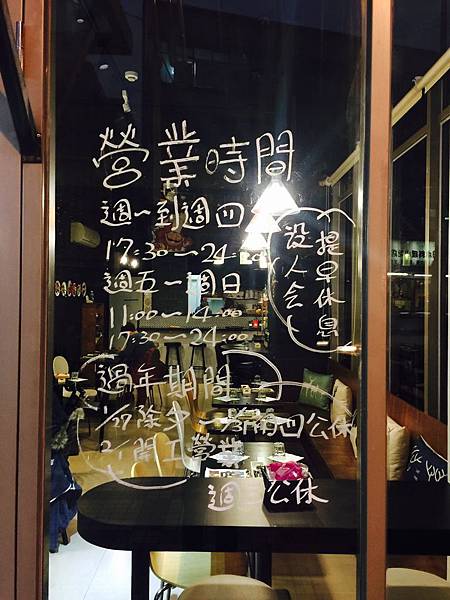 營業時間
週一到週四
17:30~24:00
週五~週日
11:00~14:00
17:30~24:00
提早休息
設人会卜
過年期間
1/27除夕~
公休
2/1開工營業
週
公休